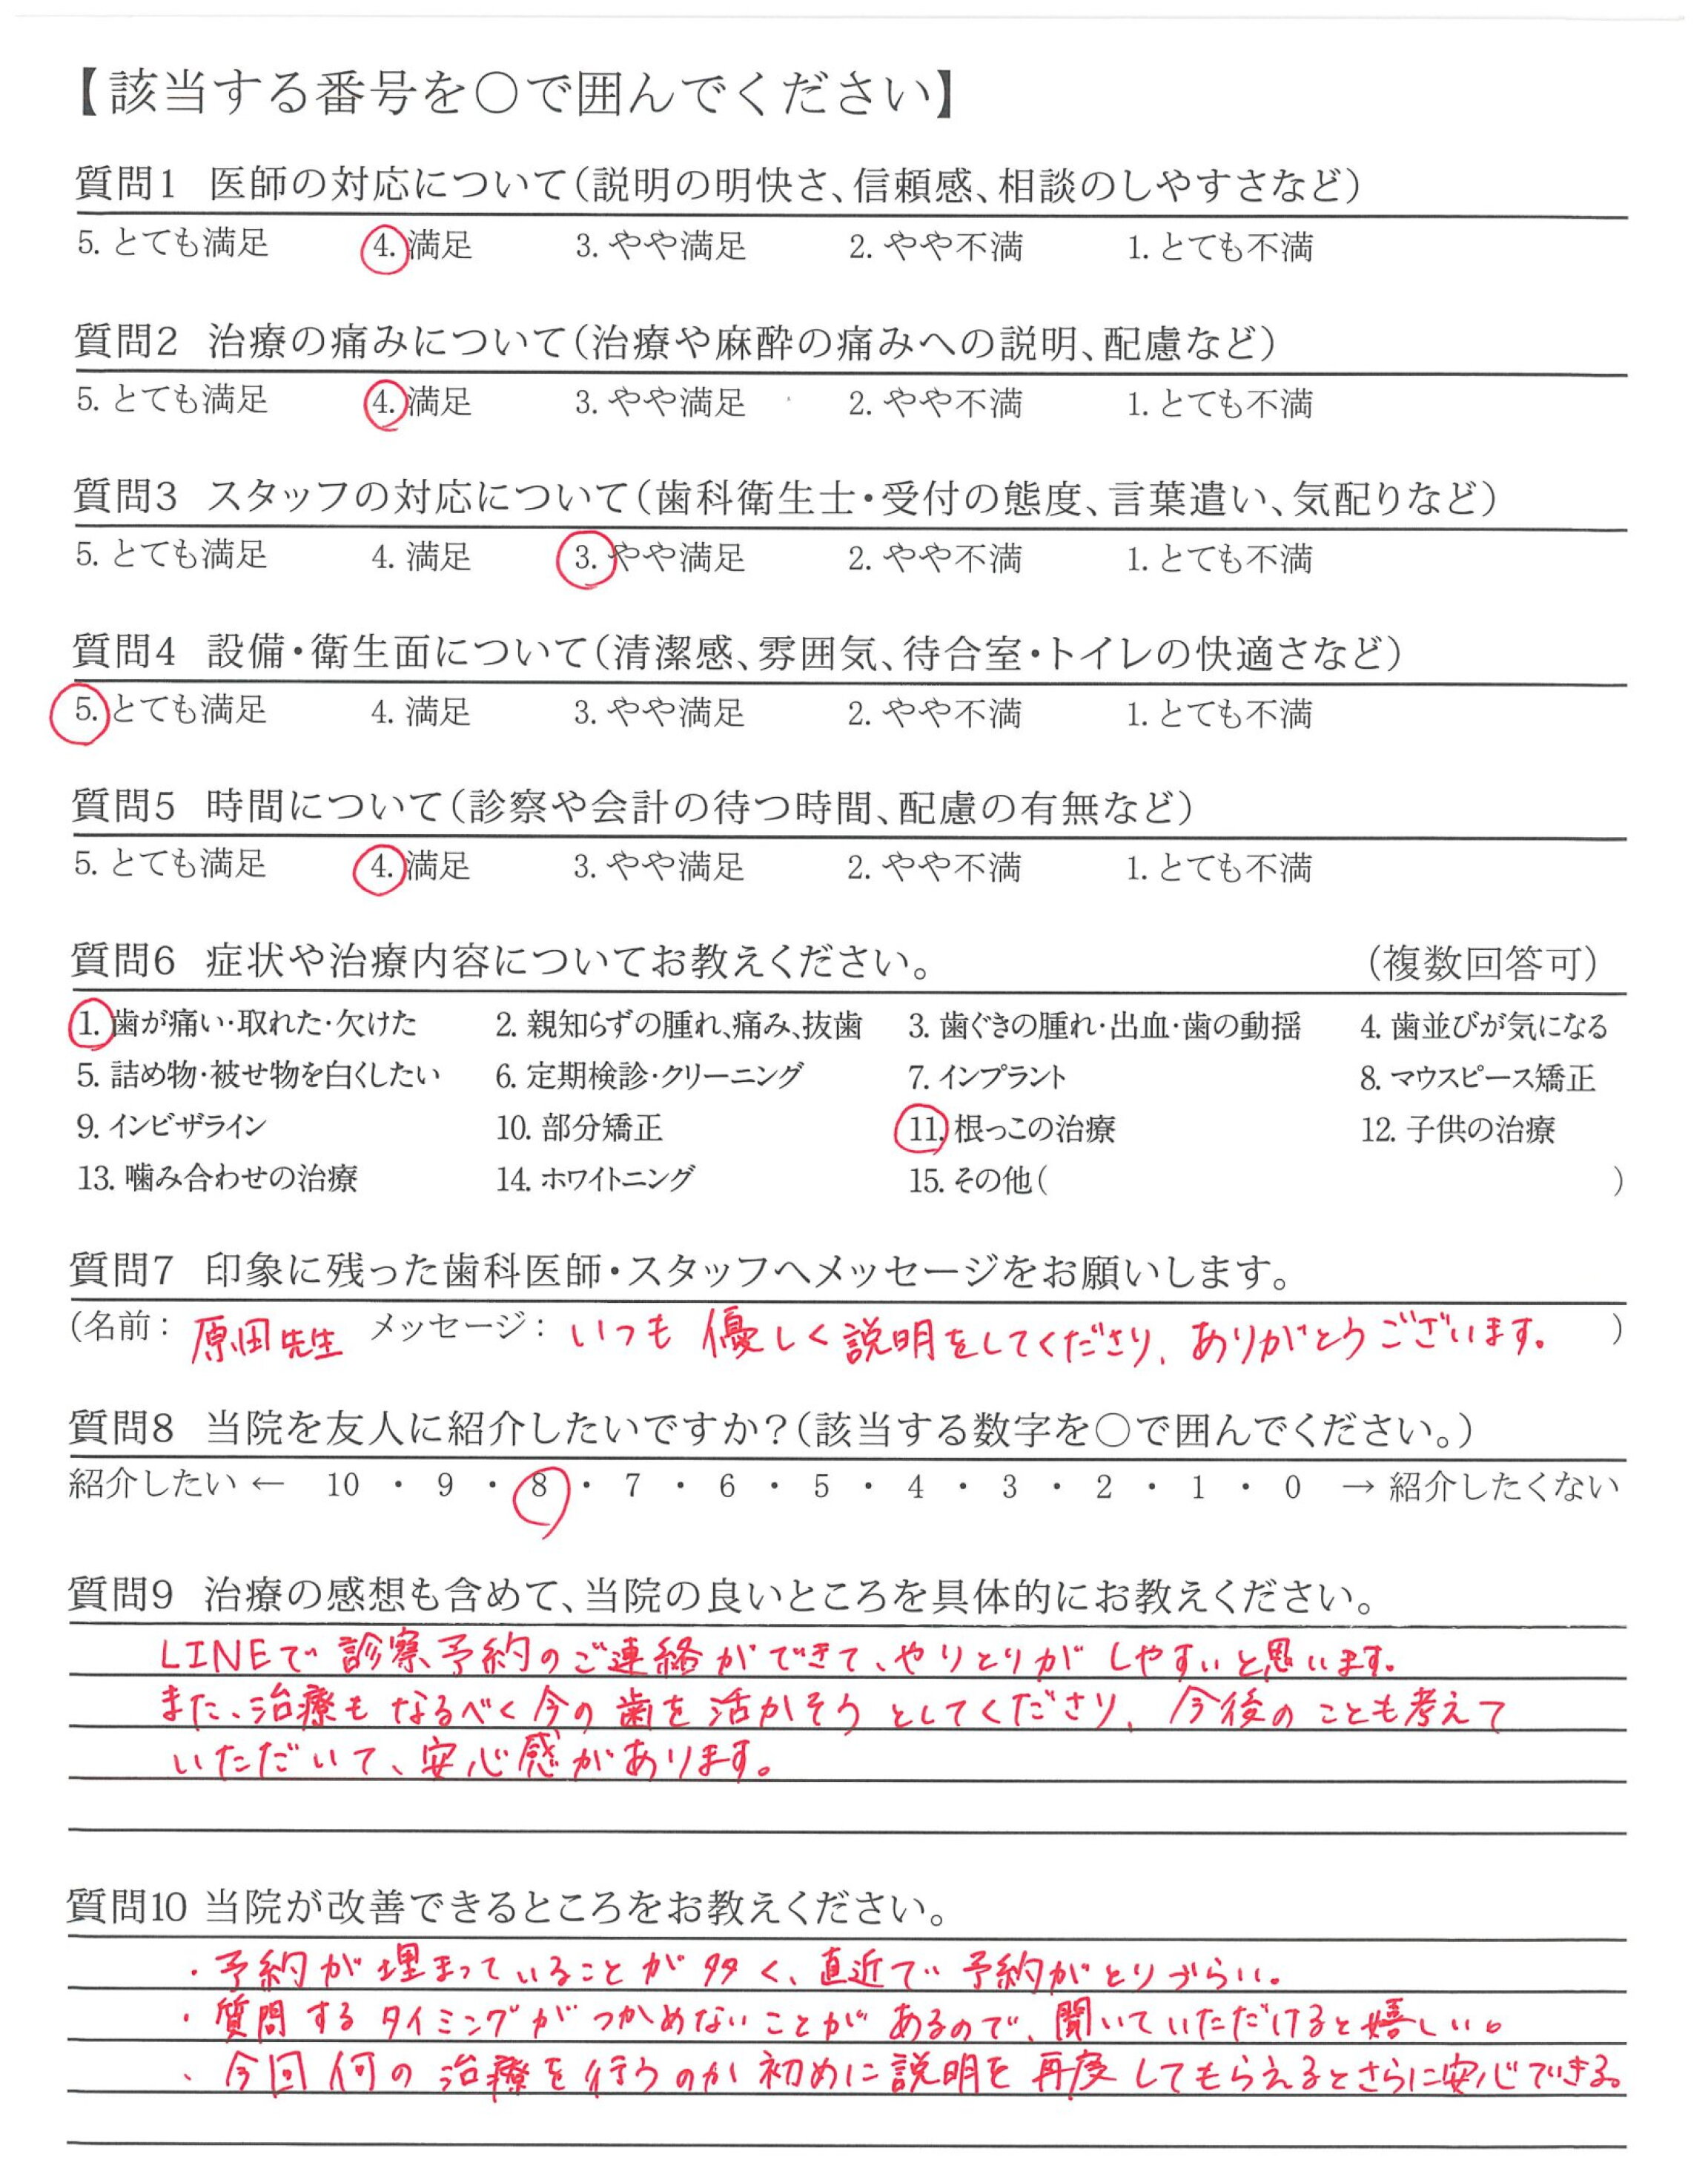 【該当する番号を○で囲んでください】
質問1 医師の対応について(説明の明快さ、信頼感、相談のしやすさなど)
5. とても満足 4. 満足 3. やや満足 2. やや不満 1. とても不満
質問2 治療の痛みについて(治療や麻酔の痛みへの説明、配慮など)
5. とても満足 4. 満足 3. やや満足 2. やや不満 1. とても不満
質問3 スタッフの対応について(歯科衛生士・受付の態度、言葉遣い、気配りなど)
5. とても満足 4. 満足 3. やや満足 2. やや不満 1. とても不満
質問4 設備・衛生面について(清潔感、雰囲気、待合室・トイレの快適さなど)
5. とても満足 4. 満足 3. やや満足 2. やや不満 1. とても不満
質問5 時間について(診察や会計の待つ時間、配慮の有無など)
5. とても満足 4. 満足 3. やや満足 2. やや不満 1. とても不満
質問6 症状や治療内容についてお教えください。 (複数回答可)
1. 歯が痛い・取れた・欠けた 2. 親知らずの腫れ、痛み、抜歯 3. 歯ぐきの腫れ・出血・歯の動揺 4. 歯並びが気になる
5. 詰め物・被せ物を白くしたい 6. 定期検診・クリーニング 7. インプラント 8. マウスピース矯正
9. インビザライン 10. 部分矯正 11. 根っこの治療 12. 子供の治療
13. 噛み合わせの治療 14. ホワイトニング 15. その他( )
質問7 印象に残った歯科医師・スタッフへメッセージをお願いします。
(名前: 原田先生 メッセージ: いつも優しく説明をしてくださり、ありがとうございます。 )
質問8 当院を友人に紹介したいですか?(該当する数字を○で囲んでください。)
紹介したい ← 10 ・ 9 ・ 8 ・ 7 ・ 6 ・ 5 ・ 4 ・ 3 ・ 2 ・ 1 ・ 0 → 紹介したくない
質問9 治療の感想も含めて、当院の良いところを具体的にお教えください。
LINEで診察予約のご連絡ができて、やりとりがしやすいと思います。
また、治療もなるべく今の歯を活かそうとしてくださり、今後のことも考えて
いただいて、安心感があります。
質問10 当院が改善できるところをお教えください。
・予約が埋まっていることが多く、直近で予約がとりづらい。
・質問するタイミングがつかめないことがあるので、聞いていただけると嬉しい。
、今回何の治療を行うのか初めに説明を再度してもらえるとさらに安心できる。